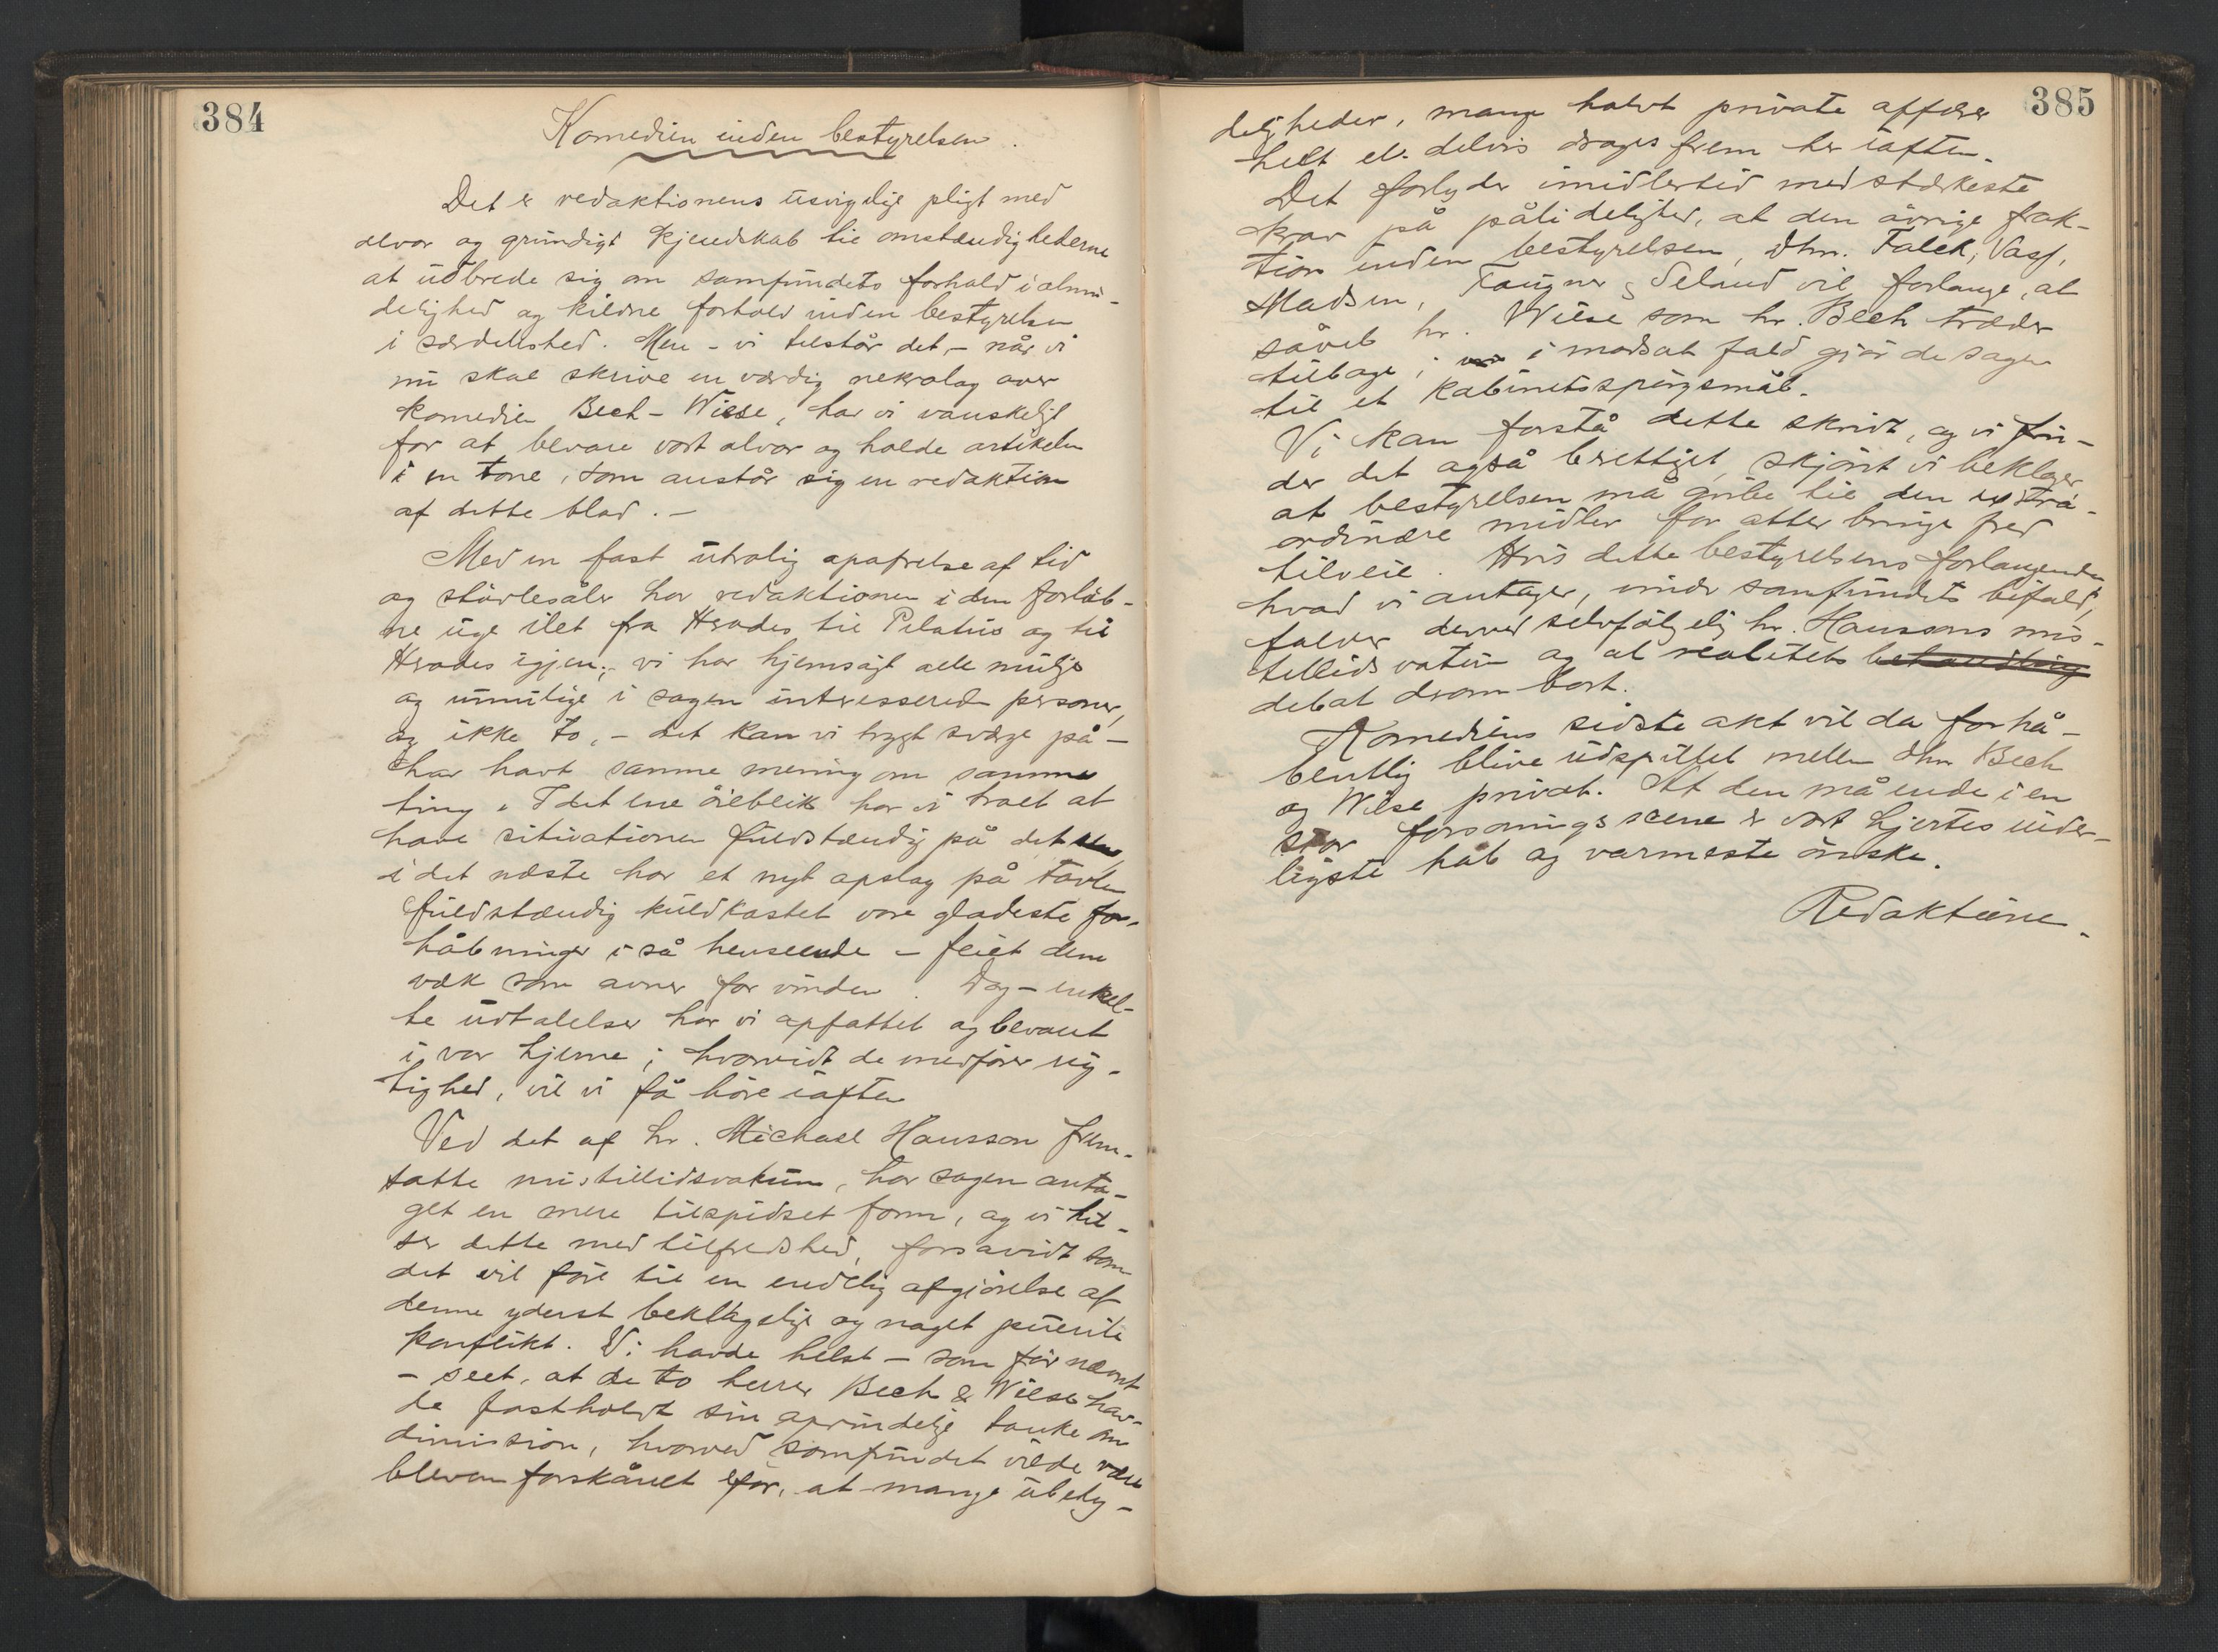 384
Komedien inden bestyrelsen.
Det er redaktionens usvigelige pligt med
alvor og grundigt kjendskab til omstændighederne
at udbrede sig om samfundets forhold i almin-
delighed og kildne forhold inden bestyrelsen
i særdeleshed. Men - vi tilstår det, - når vi
nu skal skrive en værdig nekrolog over
komedien Bech-Wiese, har vi vanskeligt
for at bevare vort alvor og holde artikelen
i en tone, som anstår sig en redaktion
af dette blad. -
Med en fast utrolig opofrelse af tid
og støvlesåler har redaktionen i den forløb-
ne uge ilet fra Herodes til Pilatus og til
Herodes igjen; vi har hjemsøgt alle mulige
og umulige i sagen interesserede personer,
og ikke to, - det kan vi trygt sværge på -
har havt samme mening om samme
ting. I det ene øieblik har vi troet at
have situationen fuldstændig på det rene
i det næste har et nyt opslag på tavlen
fuldstændig kuldkastet vore gladeste for-
håbninger i så henseende - feiet dem
væk som avner for vinden. Dog - enkel-
te udtalelser har vi opfattet og bevaret
i vor hjerne; hvorvidt de medfører rig-
tighed, vil vi få høre iaften
Ved det af hr. Michael Hansson frem-
satte mistillidsvotum, har sagen anta-
get en mere tilspidset form, og vi hil-
ser dette med tilfredshed, forsavidt som
det vil føre til en endelig afgjørelse af
denne yderst beklagelige og noget puerile
konflikt. Vi havde helst - som før nævnt
- seet, at de to herrer Bech & Wiese hav-
de fastholdt sin oprindelige tanke om
dimission, hvorved samfundet vilde være
bleven forskånet for, at mange ubety-
385
deligheder, mange halvt private affærer
helt el. delvis drages frem her iaften.
Det forlyder imidlertid med stærkeste
krav på pålidelighed, at den øvrige frak-
tion inden bestyrelsen, dhrr. Falck, Vasf,
Madsen, Fougner & Seland vil forlange, at
såvel hr. Wiese som hr. Bech træder
tilbage; i modsat fald gjør de sagen
til et kabinetsspørgsmål.
Vi kan forstå dette skridt, og vi fin-
der det også berettiget, skjønt vi beklager
at bestyrelsen må gribe til den extra-
ordinære midler for atter bringe fred
tilveie. Hvis dette bestyrelsens forlangende
hvad vi antager, vinder samfundets bifald,
falder derved selvfølgelig hr. Hanssons mis-
tillidsvotum og al realitets behandling
debat derom bort.
Komediens sidste akt vil da forhå-
bentlig blive udspillet mellem dhrr Bech
og Wiese privat. At den må ende i en
stor forsoningsscene er vort hjertes inder-
ligste håb og varmeste ønske.
Redaktiøne.